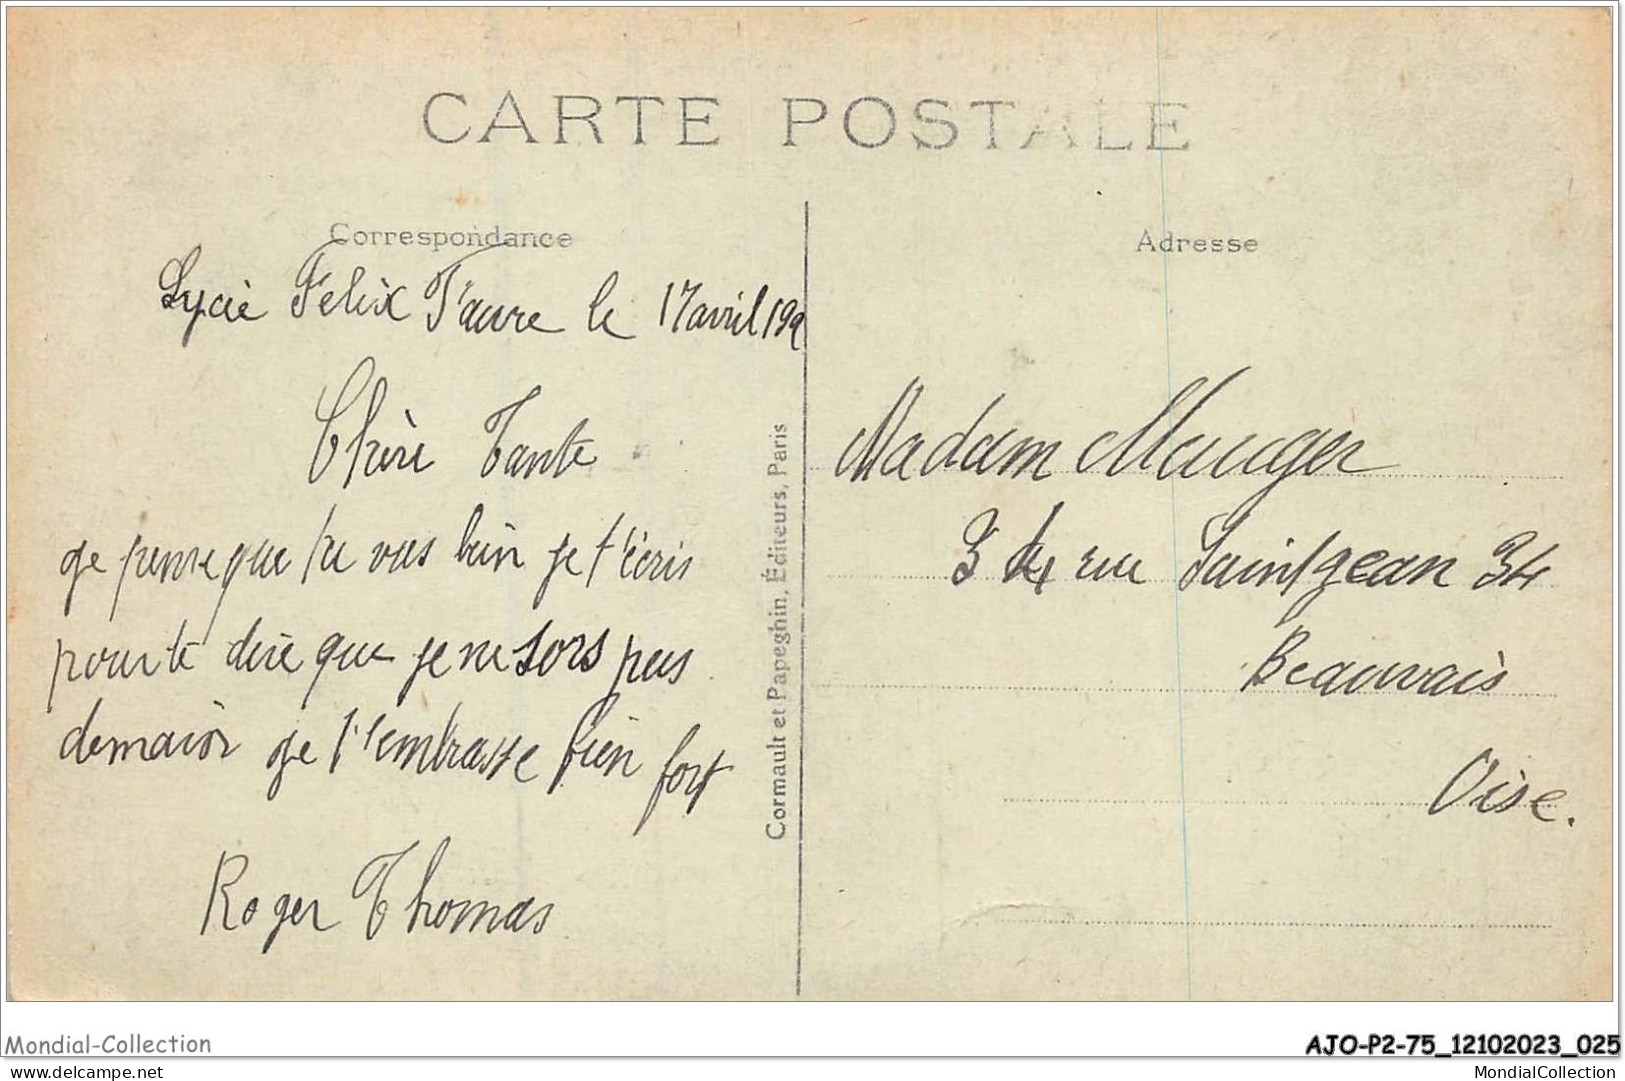 CARTE POSTALE
Correspondance
Adresse
Lycée Felix Faure le 17 avril 192
Chère Tante
je pense que tu vas bien je t'écris
pour te dire que je ne sors pas
demain je t'embrasse bien fort
Roger Thomas
Cormault et Papeghin, Éditeurs, Paris
Madam Mauger
rue Saint Jean 34
Beauvais
Oise.
Mondial-Collection
AJO-P2-75_12102023_025
mondial-collection
MondialCollection